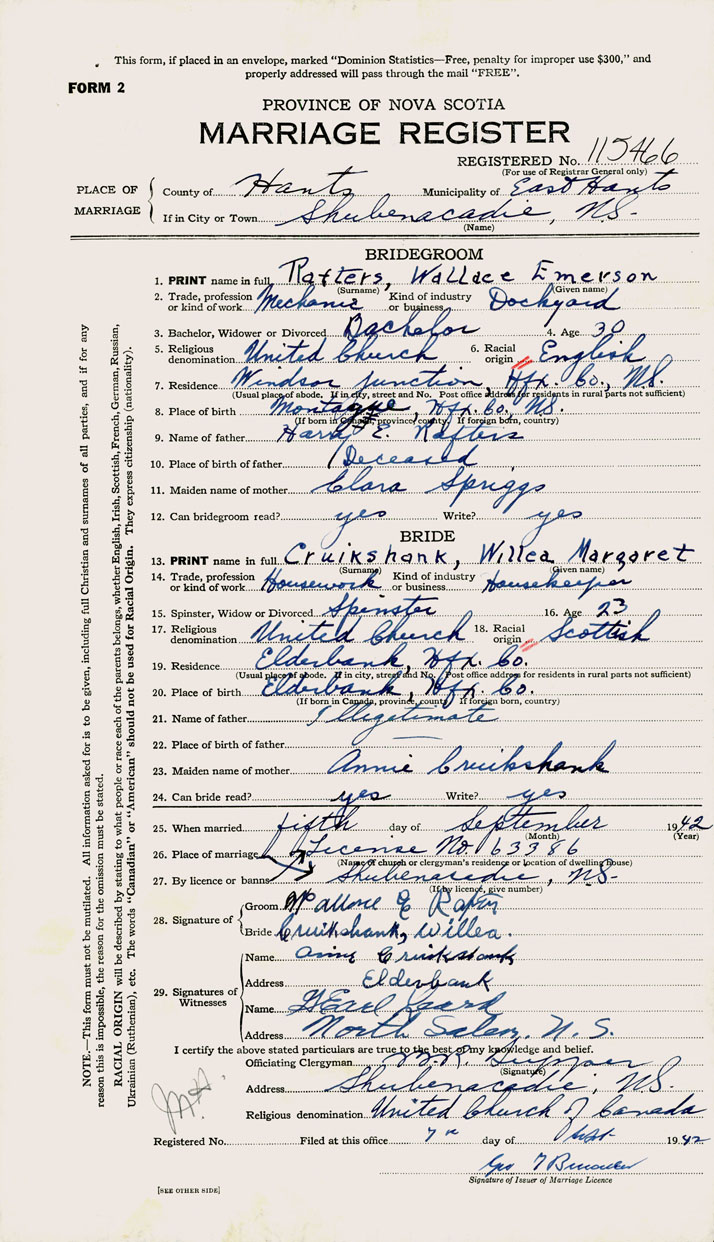 This form, if placed in an envelope, marked "Dominion Statistics—Free, penalty for improper use $300," and
properly addressed will pass through the mail "FREE".
FORM 2
PROVINCE OF NOVA SCOTIA
MARRIAGE REGISTER
REGISTERED No. 115466
(For use of Registrar General only)
PLACE OF MARRIAGE
County of Hants Municipality of East Hants
If in City or Town Shubenacadie, N.S.
(Name)
BRIDEGROOM
1. PRINT name in full Rafters, Wallace Emerson
(Surname) (Given name)
2. Trade, profession or kind of work Mechanic Kind of industry or business Dockyard
3. Bachelor, Widower or Divorced Bachelor 4. Age 30
5. Religious denomination United Church 6. Racial origin English
7. Residence Windsor Junction, Hfx. Co., N.S.
(Usual place of abode. If in city, street and No. Post office address for residents in rural parts not sufficient)
8. Place of birth Montague, Hfx. Co., N.S.
(If born in Canada, province, county. If foreign born, country)
9. Name of father E. Rafters
10. Place of birth of father Deceased
11. Maiden name of mother Clara Spriggs
12. Can bridegroom read? yes Write? yes
BRIDE
13. PRINT name in full Cruikshank, Willea Margaret
(Surname) (Given name)
14. Trade, profession or kind of work Housework Kind of industry or business Housekeeper
15. Spinster, Widow or Divorced Spinster 16. Age 23
17. Religious denomination United Church 18. Racial origin Scottish
19. Residence Elderbank, Hfx. Co.
(Usual place of abode. If in city, street and No. Post office address for residents in rural parts not sufficient)
20. Place of birth Elderbank, Hfx. Co.
(If born in Canada, province, county. If foreign born, country)
21. Name of father Illegitimate
22. Place of birth of father
23. Maiden name of mother Annie Cruikshank
24. Can bride read? yes Write? yes
25. When married fifth day of September 1942
(Month) (Year)
26. Place of marriage License No. 63386
(Name of church or clergyman's residence or location of dwelling house)
27. By licence or banns Shubenacadie, N.S.
(If by licence, give number)
28. Signature of
Groom Wallace E Rafter
Bride Cruikshank, Willea.
29. Signatures of Witnesses
Name Annie Cruikshank
Address Elderbank
Name
Address North Salem, N.S.
I certify the above stated particulars are true to the best of my knowledge and belief.
Officiating Clergyman
(Signature)
Address Shubenacadie, N.S.
Religious denomination United Church of Canada
Registered No. Filed at this office 7th day of Sept 1942
Geo
Signature of Issuer of Marriage Licence
[SEE OTHER SIDE]
NOTE.—This form must not be mutilated. All information asked for is to be given, including full Christian and surnames of all parties, and if for any
reason this is impossible, the reason for the omission must be stated.
RACIAL ORIGIN will be described by stating to what people or race each of the parents belongs, whether English, Irish, Scottish, French, German, Russian,
Ukrainian (Ruthenian), etc. The words "Canadian" or "American" should not be used for Racial Origin. They express citizenship (nationality).